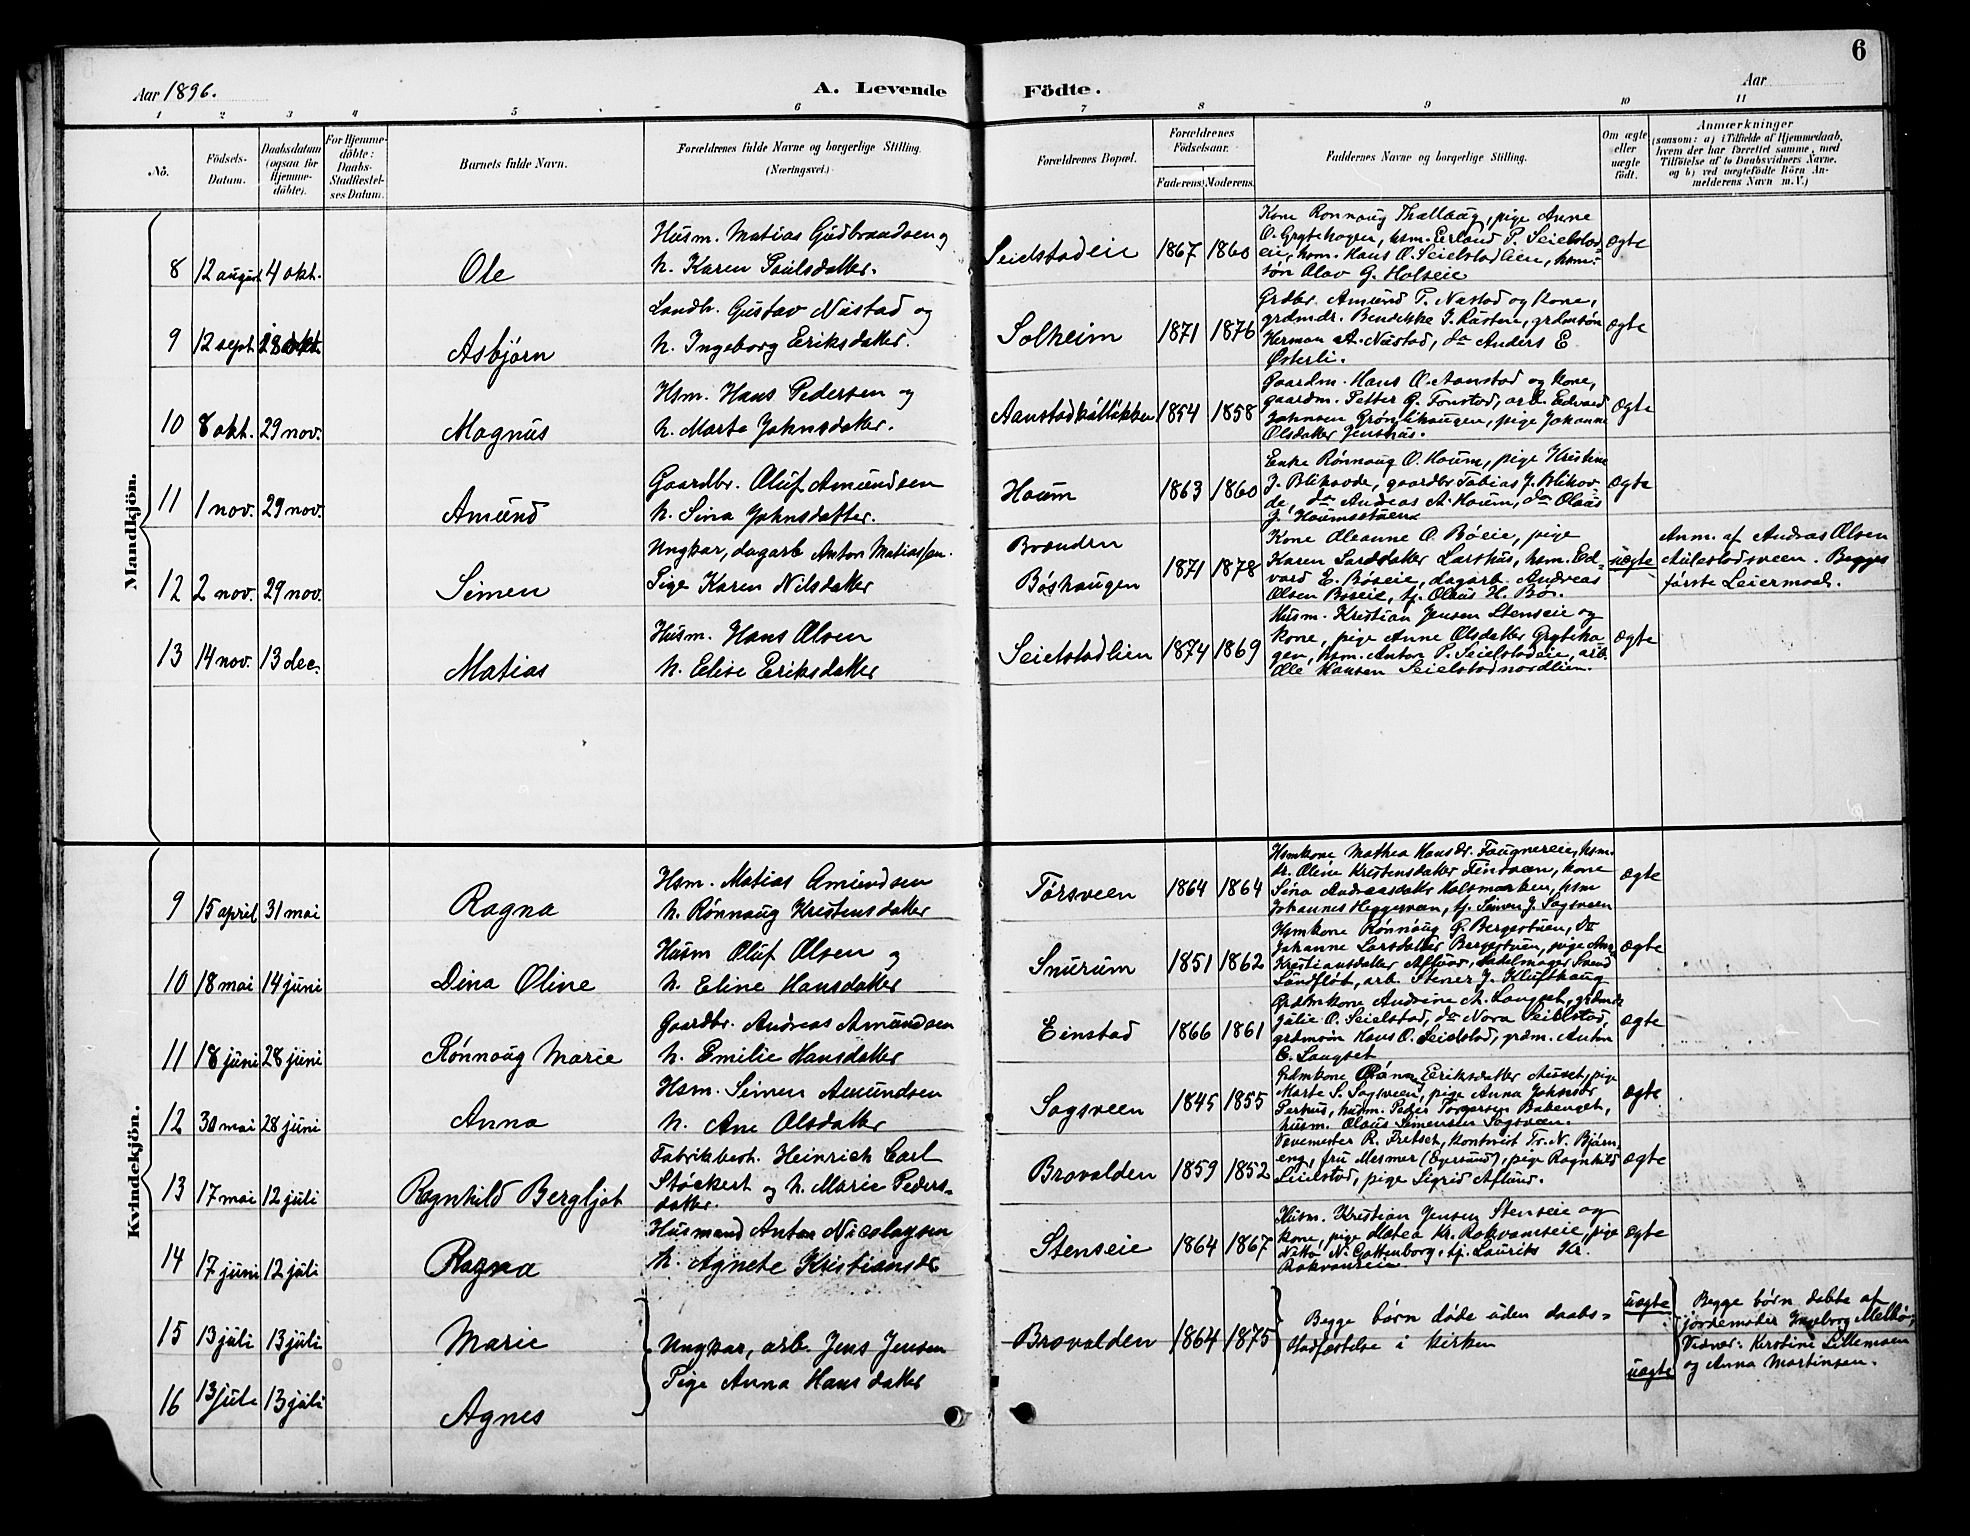 6
Aar 1896.
A. Levende Födte.
Aar
1 2 3 4 5 6 7 8 9 10 11
No.
Födsels-Datum.
Daabsdatum (ogsaa for Hjemme-döbte).
For Hjemme-döbte: Daabs-Stadfæstel-ses Datum.
Barnets fulde Navn.
Forældrenes fulde Navne og borgerlige Stilling. (Næringsvei.)
Forældrenes Bopæl.
Forældrenes Födselsaar.
Faderens. Moderens.
Faddernes Navne og borgerlige Stilling.
Om ægte eller uægte födt.
Anmærkninger (saasom: a) i Tilfælde af Hjemmedaab, hvem der har forrettet samme, med Tilföielse af to Daabsvidners Navne, og b) ved uægtefödte Börn An-melderens Navn m. V.)
Mandkjön.
8 12 august 4 okt. Ole
Husm. Matias Gudbrandsen og
h. Karen Paulsdatter.
Seielstadeie 1867 1860
Kone Rønnaug Thallaug, pige Anne
O. Grytehagen, hsm. Erland P. Seielstad
eie, hsm. Hans O. Seielstadlien, hsm.
søn Olav G. Holseie
ægte
9 12 sept. 18 okt. Asbjørn
Landh. Gustav Nustad og
h. Ingeborg Eriksdatter.
Solheim 1871 1876
Grdbr. Amund P. Nustad og kone,
grdmdr. Bendikke J. Rusten, grdmsøn
Herman A. Nustad, do Anders E
Østerli.
ægte
10 8 okt. 29 nov. Magnus
Hsm. Hans Pedersen og
h. Marte Johnsdatter.
Aanstadkålløkken 1854 1858
Gaardm. Hans O. Aanstad og kone,
gaardm. Petter G. Fonstad, arb. Edvard
Johnsen Grønlihaugen, pige Johanne
Olsdatter Jenshus.
ægte
11 1 nov. 29 nov. Amund
Gaardbr. Oluf Amundsen
h. Sina Johnsdatter.
Houm 1863 1860
Enke Rønnaug O. Houm, pige Kristine
J. Blikovde, gaardbr Tobias J. Blikov-
de, do Andreas A. Houm, do Olaus
J. Houmsstuen
ægte
12 2 nov. 29 nov. Simen
Ungkar, dagarb Anton Matiassen.
Pige Karen Nilsdatter
Brænden
Bøshaugen 1871 1878
Kone Oleanne O. Bøeie, pige
Karen Larsdatter Larshus, hsm. Ed-
vard E. Bøseie, dagarb. Andreas
Olsen Bøseie, tj. Olaus H. Bø.
uægte
Anm. af Andreas Olsen
Aulestadsveen. Begges
første Leiermaal.
13 14 nov. 13 dec. Matias
Husm. Hans Olsen
h. Elise Eriksdatter
Seielstadlien 1874 1869
Husm. Kristian Jensen Stenseie og
kone, pige Anne Olsdatter Gryteha-
gen, hsm. Anton P. Seielstadeie, arb.
Ole Hansen Seielstadnordlien.
ægte
Kvindekjön.
9 15 april 31 mai Ragna
Hsm. Matias Amundsen
h. Rønnaug Kristensdatter
Tørsveen 1864 1864
Hsmkone Mathea Hansdr. Faugnereie, hsm.
dr. Oline Kristensdatter Finsveen, kone
Sina Andreasdatter Holsmarken, hsm
Johannes Heggesveen, tj. Simen J. Sagsveen
ægte
10 18 mai 14 juni Dina Oline
Husm Oluf Olsen og
h. Eline Hansdatter
Snurum 1851 1862
Hsmkone Rønnaug G. Bergestuen, do
Johanne Larsdatter Bergestuen, pige Ane
Kristiansdatter Aflund, Sadelmager Svend
Sundfløt, arb. Stener J. Klufthaug
ægte
11 18 juni 28 juni Rønnaug Marie
Gaardbr. Andreas Amundsen
h. Emilie Hansdatter
Einstad 1866 1861
Grdmkone Andrine A. Langset, grdmdr
Julie O. Seielstad, do Nora Seielstad,
grdmsøn Hans O. Seielstad, grdm. Anton
E. Langset
ægte
12 30 mai 28 juni Anna
Hsm. Simen Amundsen
h. Ane Olsdatter
Sagsveen 1845 1855
Grdmkone Eriksdatter Auset, pige
Marte S. Sagsveen, pige Anna Johnsdr
Perhus, husm. Peder Torgersen Bakenget,
husm. Olaus Simensen Sagsveen.
ægte
13 17 mai 12 juli Ragnhild Bergljot
Fabrikbest. Heinrich Carl
Støckert og h. Marie Peders-
datter.
Brovolden 1859 1852
Vævemester R. Fritsch, kontorist Tr. N. Bjørn
eng, fru Mesmer (Egersund), pige Ragnhild
Seielstad, pige Sigrid Aflund.
ægte
14 17 juni 12 juli Ragna
Husmand Anton Nicolaysen
h. Agnete Kristiansdr
Stenseie 1864 1867
Husm. Kristian Jensen Stenseie og
kone, pige Matea Kr. Rokvamseie, pige
Netta N. Gottenborg, tj. Laurits Kr.
Rokvamseie
ægte
15 13 juli 13 juli Marie
16 13 juli 13 juli Agnes
Ungkar, arb. Jens Jensen
Pige Anna Hansdatter
Brovolden 1864 1875
Begge børn døde uden daabs-
stadfæstelse i kirken
uægte
uægte
Begge børn døbte af
jordemoder Ingeborg Melbø,
Vidner: Kerstine Lillemoen
og Anna Martinsen.